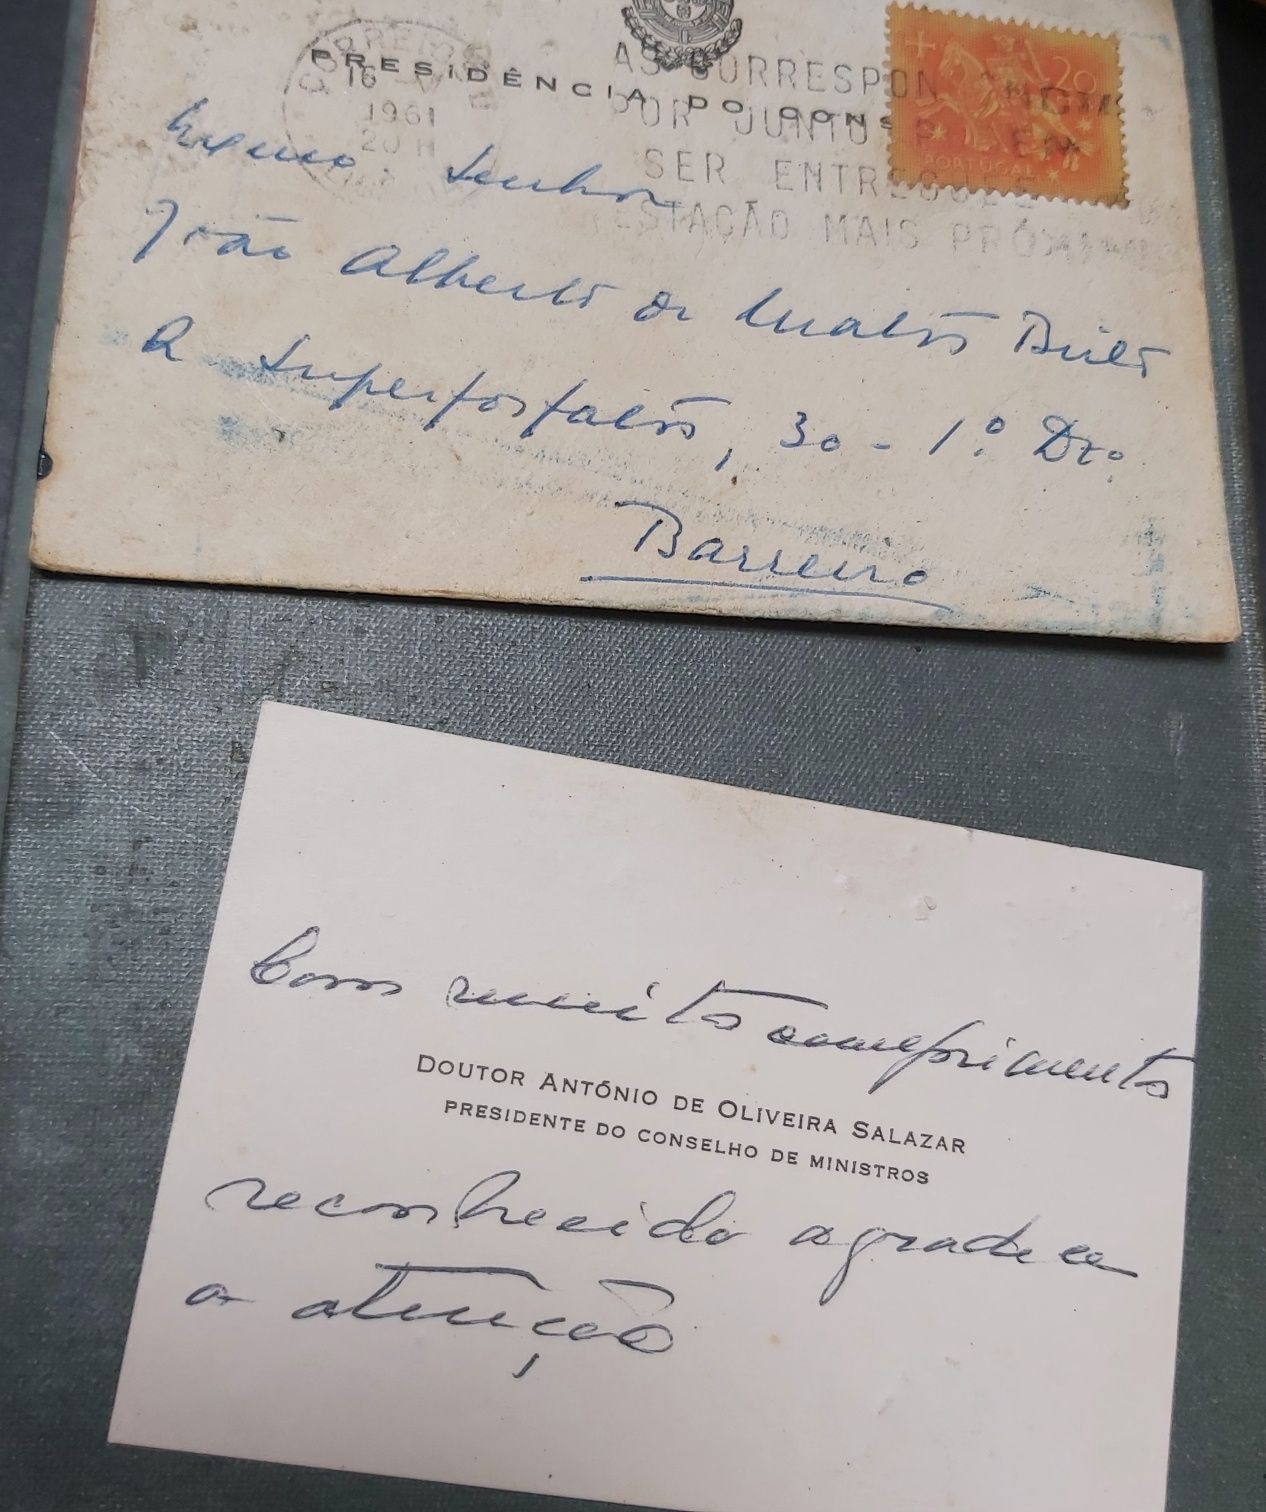 CORREIOS
16
1961
20 H
PRESIDÊNCIA DO CONS
AS CORRESPON
POR JUNTO EM
SER ENTREGUES
ESTAÇÃO MAIS PRÓXIMA
20
PORTUGAL
Exmo Senhor
João Alberto de Matos
A Superfosfatos, 30 - 1.º Dto
Barreiro
Com muitos cumprimentos
DOUTOR ANTÓNIO DE OLIVEIRA SALAZAR
PRESIDENTE DO CONSELHO DE MINISTROS
reconhecido agradece
a atenção